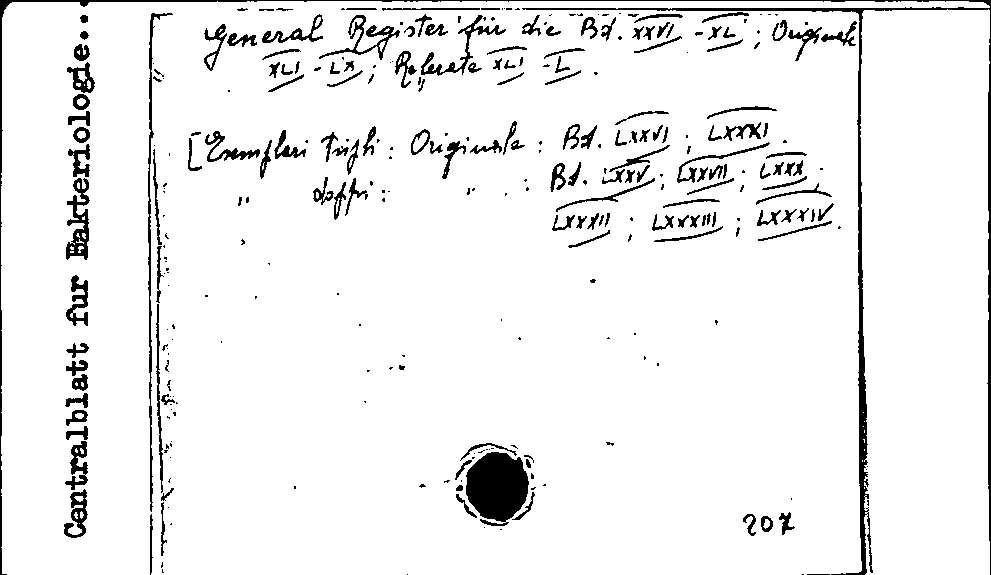 Centralblatt fur Bakteriologie...
General Register für die Bd. XXVI - XL ; Originale
XLI - LX ; Referate XLI - L .
[Esemplari Tripli : Originale : Bd. LXXVI ; LXXXI .
" doppi : " : Bd. LXXV ; LXXVII ; LXXX ;
LXXXII ; LXXXIII ; LXXXIV .
207